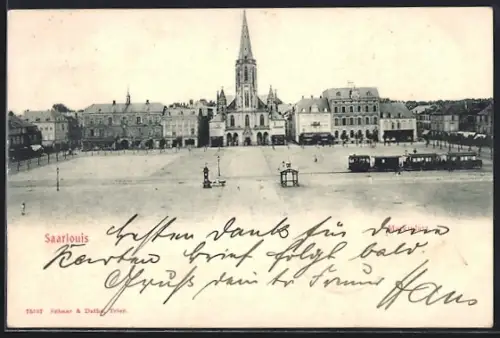 Saarlouis
Besten Dank für Deine
Karten Brief folgt bald.
Gruß dein tr Freund
Hans
Schaar & Dathe, Trier.